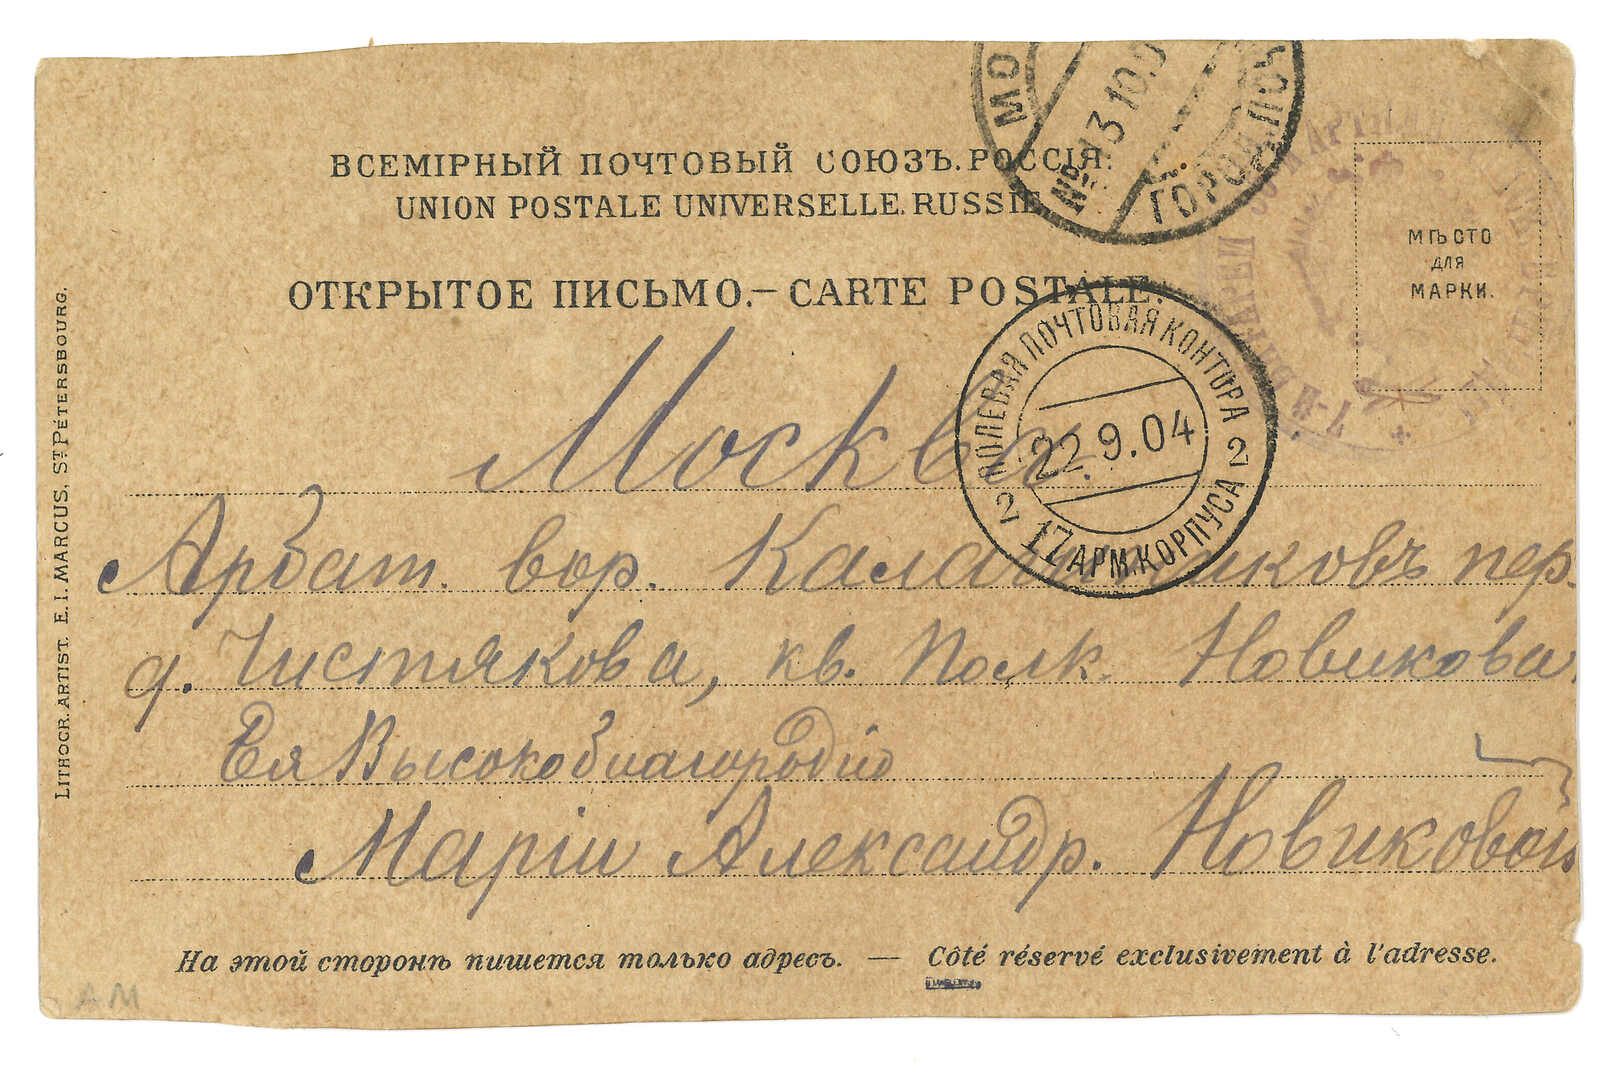 ВСЕМІРНЫЙ ПОЧТОВЫЙ СОЮЗЪ. РОССІЯ.
UNION POSTALE UNIVERSELLE. RUSSIE.
ОТКРЫТОЕ ПИСЬМО.—CARTE POSTALE.
МѢСТО
ДЛЯ
МАРКИ.
МО
13 10.0
ГОРОД. ПОЧ
ПОЛЕВАЯ ПОЧТОВАЯ КОНТОРА
22.9.04
2 17 АРМ. КОРПУСА 2
Москва.
Арбат. вор. Калашниковъ пер.
д. Чистякова, кв. Полк. Новикова.
Ея Высокоблагородію
Маріи Александр. Новиковой
На этой сторонѣ пишется только адресъ. — Côté réservé exclusivement à l'adresse.
LITHOGR. ARTIST. E. I. MARCUS, ST PÉTERSBOURG.
AM